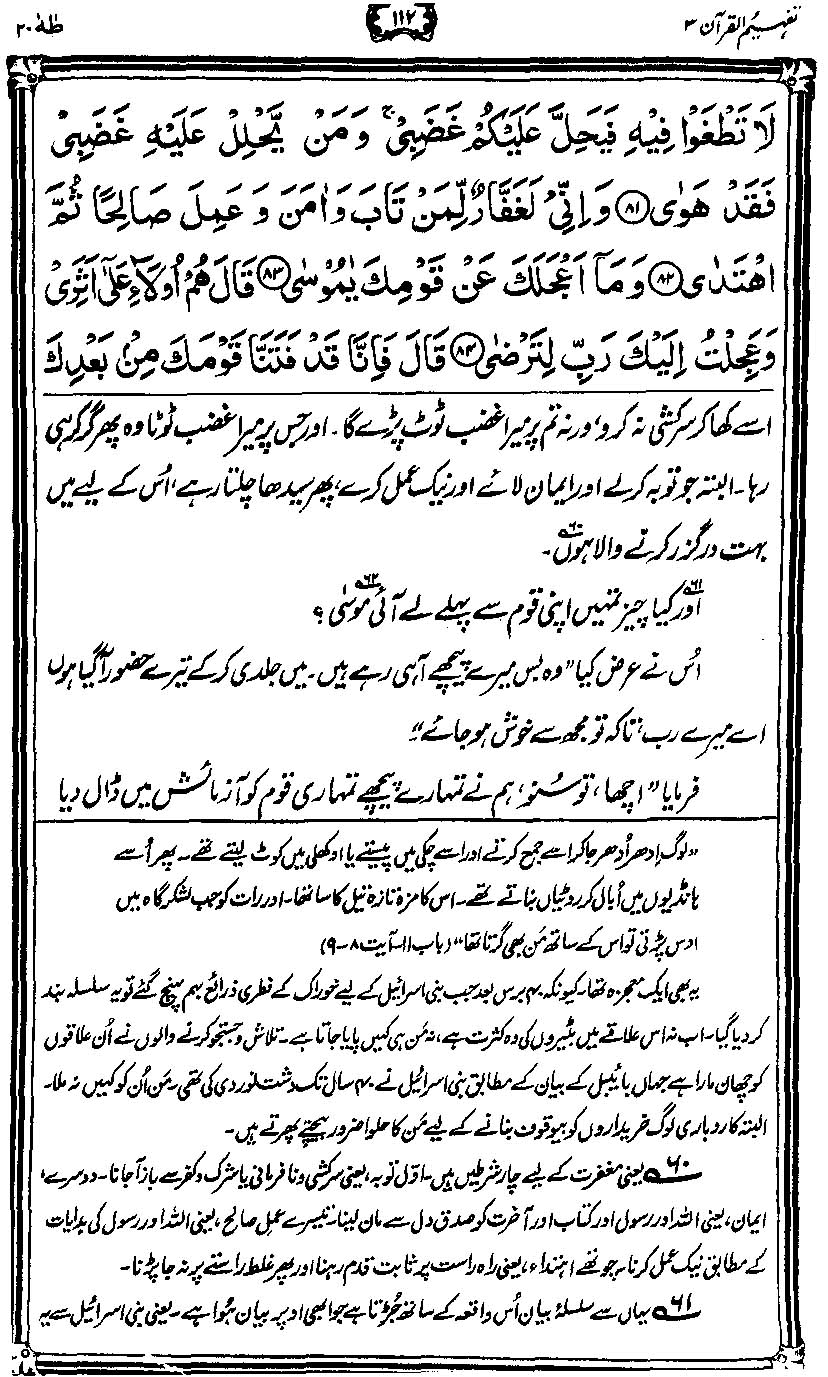 تفہیم القرآن ۳
۱۱۲
طٰهٰ ۲۰
لَا تَطْغَوْا فِيْهِ فَيَحِلَّ عَلَيْكُمْ غَضَبِيْ ۚ وَ مَنْ يَّحْلِلْ عَلَيْهِ غَضَبِيْ
فَقَدْ هَوٰى ﴿۸۱﴾ وَ اِنِّيْ لَغَفَّارٌ لِّمَنْ تَابَ وَ اٰمَنَ وَ عَمِلَ صَالِحًا ثُمَّ
اهْتَدٰى ﴿۸۲﴾ وَ مَاۤ اَعْجَلَكَ عَنْ قَوْمِكَ يٰمُوْسٰى ﴿۸۳﴾ قَالَ هُمْ اُولَآءِ عَلٰۤى اَثَرِيْ
وَ عَجِلْتُ اِلَيْكَ رَبِّ لِتَرْضٰى ﴿۸۴﴾ قَالَ فَاِنَّا قَدْ فَتَنَّا قَوْمَكَ مِنْۢ بَعْدِكَ
اسے کھا کر سرکشی نہ کرو، ورنہ تم پر میرا غضب ٹوٹ پڑے گا۔ اور جس پر میرا غضب ٹوٹا وہ پھر گر کر ہی
رہا۔ البتہ جو توبہ کر لے اور ایمان لائے اور نیک عمل کرے، پھر سیدھا چلتا رہے، اُس کے لیے میں
بہت درگزر کرنے والا ہوں۶۰۔
۶۱اور کیا چیز تمہیں اپنی قوم سے پہلے لے آئی۶۲ موسیٰ ؟
اُس نے عرض کیا ”وہ بس میرے پیچھے آ ہی رہے ہیں۔ میں جلدی کر کے تیرے حضور آگیا ہوں
اے میرے رب، تاکہ تو مجھ سے خوش ہو جائے“۔
فرمایا ”اچھا، تو سنو، ہم نے تمہارے پیچھے تمہاری قوم کو آزمائش میں ڈال دیا
”لوگ اِدھر اُدھر جا کر اسے جمع کرتے اور اسے چکی میں پیستے یا اوکھلی میں کوٹ لیتے تھے۔ پھر اُسے
ہانڈیوں میں اُبال کر روٹیاں بناتے تھے۔ اس کا مزہ تازہ تیل کا سا تھا۔ اور رات کو جب لشکر گاہ میں
اوس پڑتی تو اس کے ساتھ مَن بھی گرتا تھا“ (باب ۱۱۔ آیت ۸-۹)
یہ بھی ایک معجزہ تھا۔ کیونکہ ۴۰ برس بعد جب بنی اسرائیل کے لیے خوراک کے فطری ذرائع بہم پہنچ گئے تو یہ سلسلہ بند
کر دیا گیا۔ اب نہ اس علاقے میں بٹیروں کی وہ کثرت ہے، نہ مَن ہی کہیں پایا جاتا ہے۔ تلاش و جستجو کرنے والوں نے اُن علاقوں
کو چھان مارا ہے جہاں بائیبل کے بیان کے مطابق بنی اسرائیل نے ۴۰ سال تک دشت نوردی کی تھی۔ مَن اُن کو کہیں نہ ملا۔
البتہ کاروباری لوگ خریداروں کو بیوقوف بنانے کے لیے مَن کا حلوا ضرور بیچتے پھرتے ہیں۔
۶۰ یعنی مغفرت کے لیے چار شرطیں ہیں۔ اوّل توبہ، یعنی سرکشی و نافرمانی یا شرک و کفر سے باز آ جانا۔ دوسرے،
ایمان، یعنی اللہ اور رسول اور کتاب اور آخرت کو صدق دل سے مان لینا۔ تیسرے عمل صالح، یعنی اللہ اور رسول کی ہدایات
کے مطابق نیک عمل کرنا۔ چوتھے اہتداء، یعنی راہ راست پر ثابت قدم رہنا اور پھر غلط راستے پر نہ جا پڑنا۔
۶۱ یہاں سے سلسلۂ بیان اُس واقعہ کے ساتھ جُڑتا ہے جو ابھی اوپر بیان ہُوا ہے۔ یعنی بنی اسرائیل سے یہ